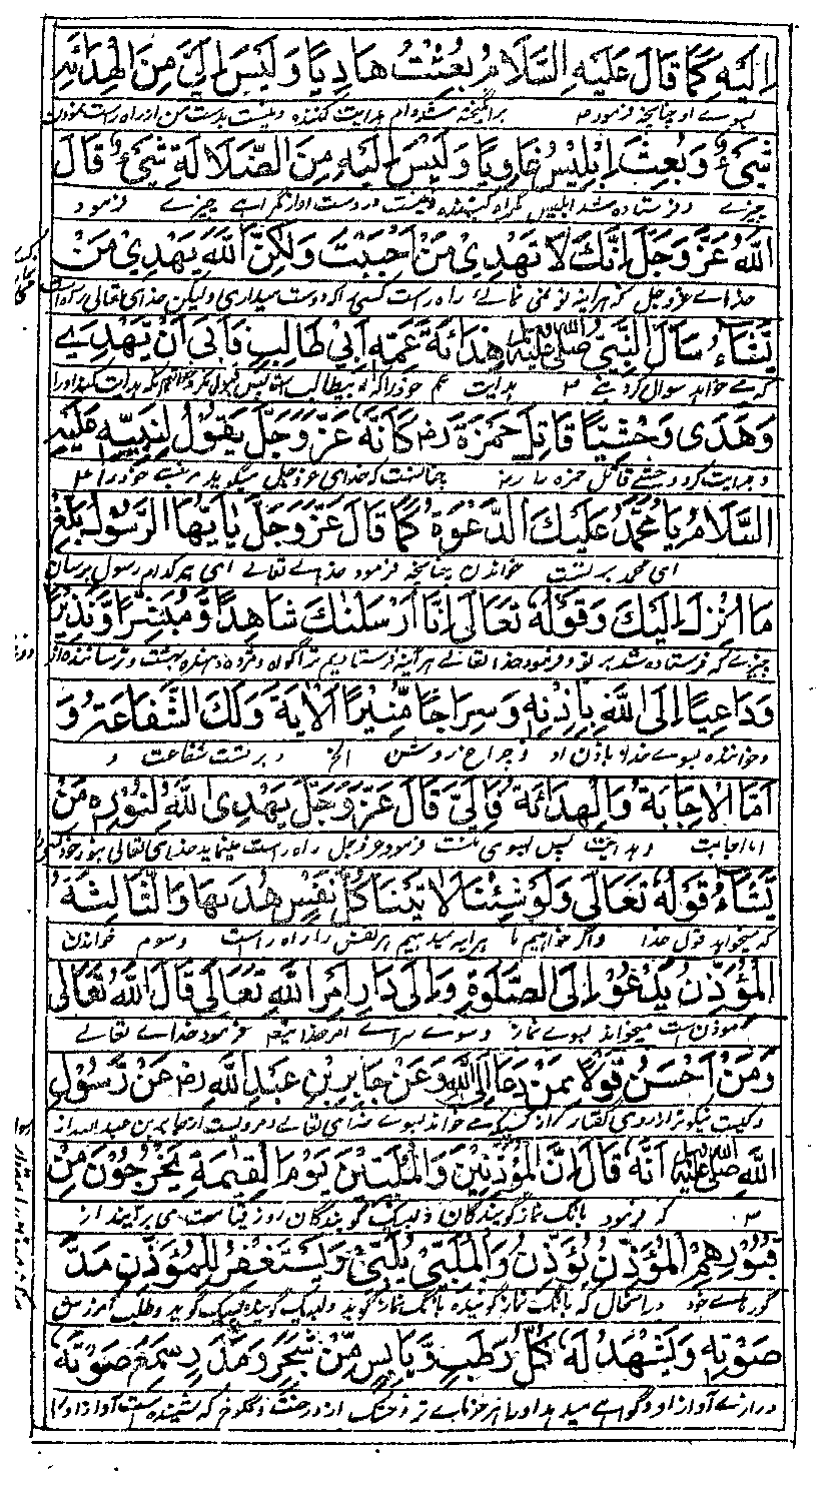 اِلَيْهِ كَمَا قَالَ عَلَيْهِ السَّلَامُ بُعِثْتُ هَادِيًا وَلَيْسَ اِلَيَّ مِنَ الْهِدَايَةِ
بسوے او چنانچه فرمود ؐ برانگیخته شده ام هدایت کننده و نیست بدست من از راه راست نمودن
شَيْءٌ وَبُعِثَ اِبْلِيْسُ غَاوِيًا وَلَيْسَ اِلَيْهِ مِنَ الضَّلَالَةِ شَيْءٌ قَالَ
چیزے و فرستاده شد ابلیس گمراه کننده و نیست در دست او از گمراهے چیزے فرمود
اللّٰهُ عَزَّ وَجَلَّ اِنَّكَ لَا تَهْدِيْ مَنْ اَحْبَبْتَ وَلٰكِنَّ اللّٰهَ يَهْدِيْ مَنْ
خداے عزوجل که هر اینه تو نمی نمائے راه راست کسی را که دوست میداری ولیکن خدای تعالی
يَّشَاءُ سَأَلَ النَّبِيُّ صلى الله عليه وسلم هِدَايَةَ عَمِّهِ اَبِيْ طَالِبٍ فَاَبٰى اَنْ يَّهْدِيَهٗ
که مے خواهد سوال کرد نبے ؐ هدایت عم خود را که ابیطالب است پس قبول نکرد
وَهَدٰى وَحْشِيًّا قَاتِلَ حَمْزَةَ رض كَاَنَّهٗ عَزَّ وَجَلَّ يَقُوْلُ لِنَبِيِّهٖ عَلَيْهِ
و هدایت کرد وحشے قاتل حمزه را رض چنانست که خدای عزوجل میگوید مر نبے خود را ؐ
السَّلَامُ يَا مُحَمَّدُ عَلَيْكَ الدَّعْوَةُ كَمَا قَالَ عَزَّ وَجَلَّ يٰاَيُّهَا الرَّسُوْلُ بَلِّغْ
ای محمد بر تست خواندن چنانچه فرمود خداے تعالے ای پیغمبر رسول برسان
مَا اُنْزِلَ اِلَيْكَ وَقَوْلُهٗ تَعَالٰى اِنَّا اَرْسَلْنٰكَ شَاهِدًا وَّمُبَشِّرًا وَّنَذِيْرًا
چیزے که فرستاده شد بر تو و فرمود خدا تعالے هر آینه فرستادیم ترا گواه و مژده دهنده بهشت و ترساننده
وَدَاعِيًا اِلَى اللّٰهِ بِاِذْنِهٖ وَسِرَاجًا مُّنِيْرًا الْاٰيَةَ وَلَكَ الشَّفَاعَةُ وَ
و خواننده بسوے خدا باذن او و چراغ روشن الخ و بر تست شفاعت و
اَمَّا الْاِجَابَةُ وَالْهِدَايَةُ فَاِلَيَّ قَالَ عَزَّ وَجَلَّ يَهْدِى اللّٰهُ لِنُوْرِهٖ مَنْ
اما اجابت و هدایت پس بسوی منست فرمود عزوجل راه راست مینماید خدای تعالی بنور خود
يَّشَاءُ قَوْلُهٗ تَعَالٰى وَلَوْ شِئْنَا لَاٰتَيْنَا كُلَّ نَفْسٍ هُدٰىهَا وَالثَّالِثَةُ
که میخواهد قول خدا و اگر خواهیم ما هر اینه میدهیم هر نفس را راه راست و سوم خواندن
الْمُؤَذِّنُ يَدْعُوْ اِلَى الصَّلٰوةِ وَاِلٰى دَارِ اَمْرِ اللّٰهِ تَعَالٰى قَالَ اللّٰهُ تَعَالٰى
موذن است میخواند بسوے نماز و سوے سراے امر خدا فرمود خداے تعالے
وَمَنْ اَحْسَنُ قَوْلًا مِّمَّنْ دَعَا اِلَى اللّٰهِ وَعَنْ جَابِرِ بْنِ عَبْدِ اللّٰهِ رض عَنْ رَّسُوْلِ
و کیست نیکوتر از روی گفتار از کسیکه خواند بسوے خدای تعالے و مرویست از جابر بن عبدالله از
اللّٰهِ صلى الله عليه وسلم اَنَّهٗ قَالَ اِنَّ الْمُؤَذِّنِيْنَ وَالْمُلَبِّيْنَ يَوْمَ الْقِيٰمَةِ يَخْرُجُوْنَ مِنْ
ؐ که فرمود بانگ نماز گویندگان و لبیک گویندگان روز قیامت می برآیند از
قُبُوْرِهِمْ الْمُؤَذِّنُ يُؤَذِّنُ وَالْمُلَبِّيْ يُلَبِّيْ وَيَسْتَغْفِرُ لِلْمُؤَذِّنِ مَدَّ
گورهاے خود در انحال که بانگ نماز گوینده بانگ نماز گوید و لبیک گوینده لبیک گوید و طلب آمرزش
صَوْتِهٖ وَيَشْهَدُ لَهٗ كُلُّ رَطْبٍ وَّيَابِسٍ مِّنْ شَجَرٍ وَّمَدَرٍ سَمِعَ صَوْتَهٗ
درازے آواز او و گواهے میدهد او را هر تر و خشک از درخت و کلوخ که شنیده است آواز او را